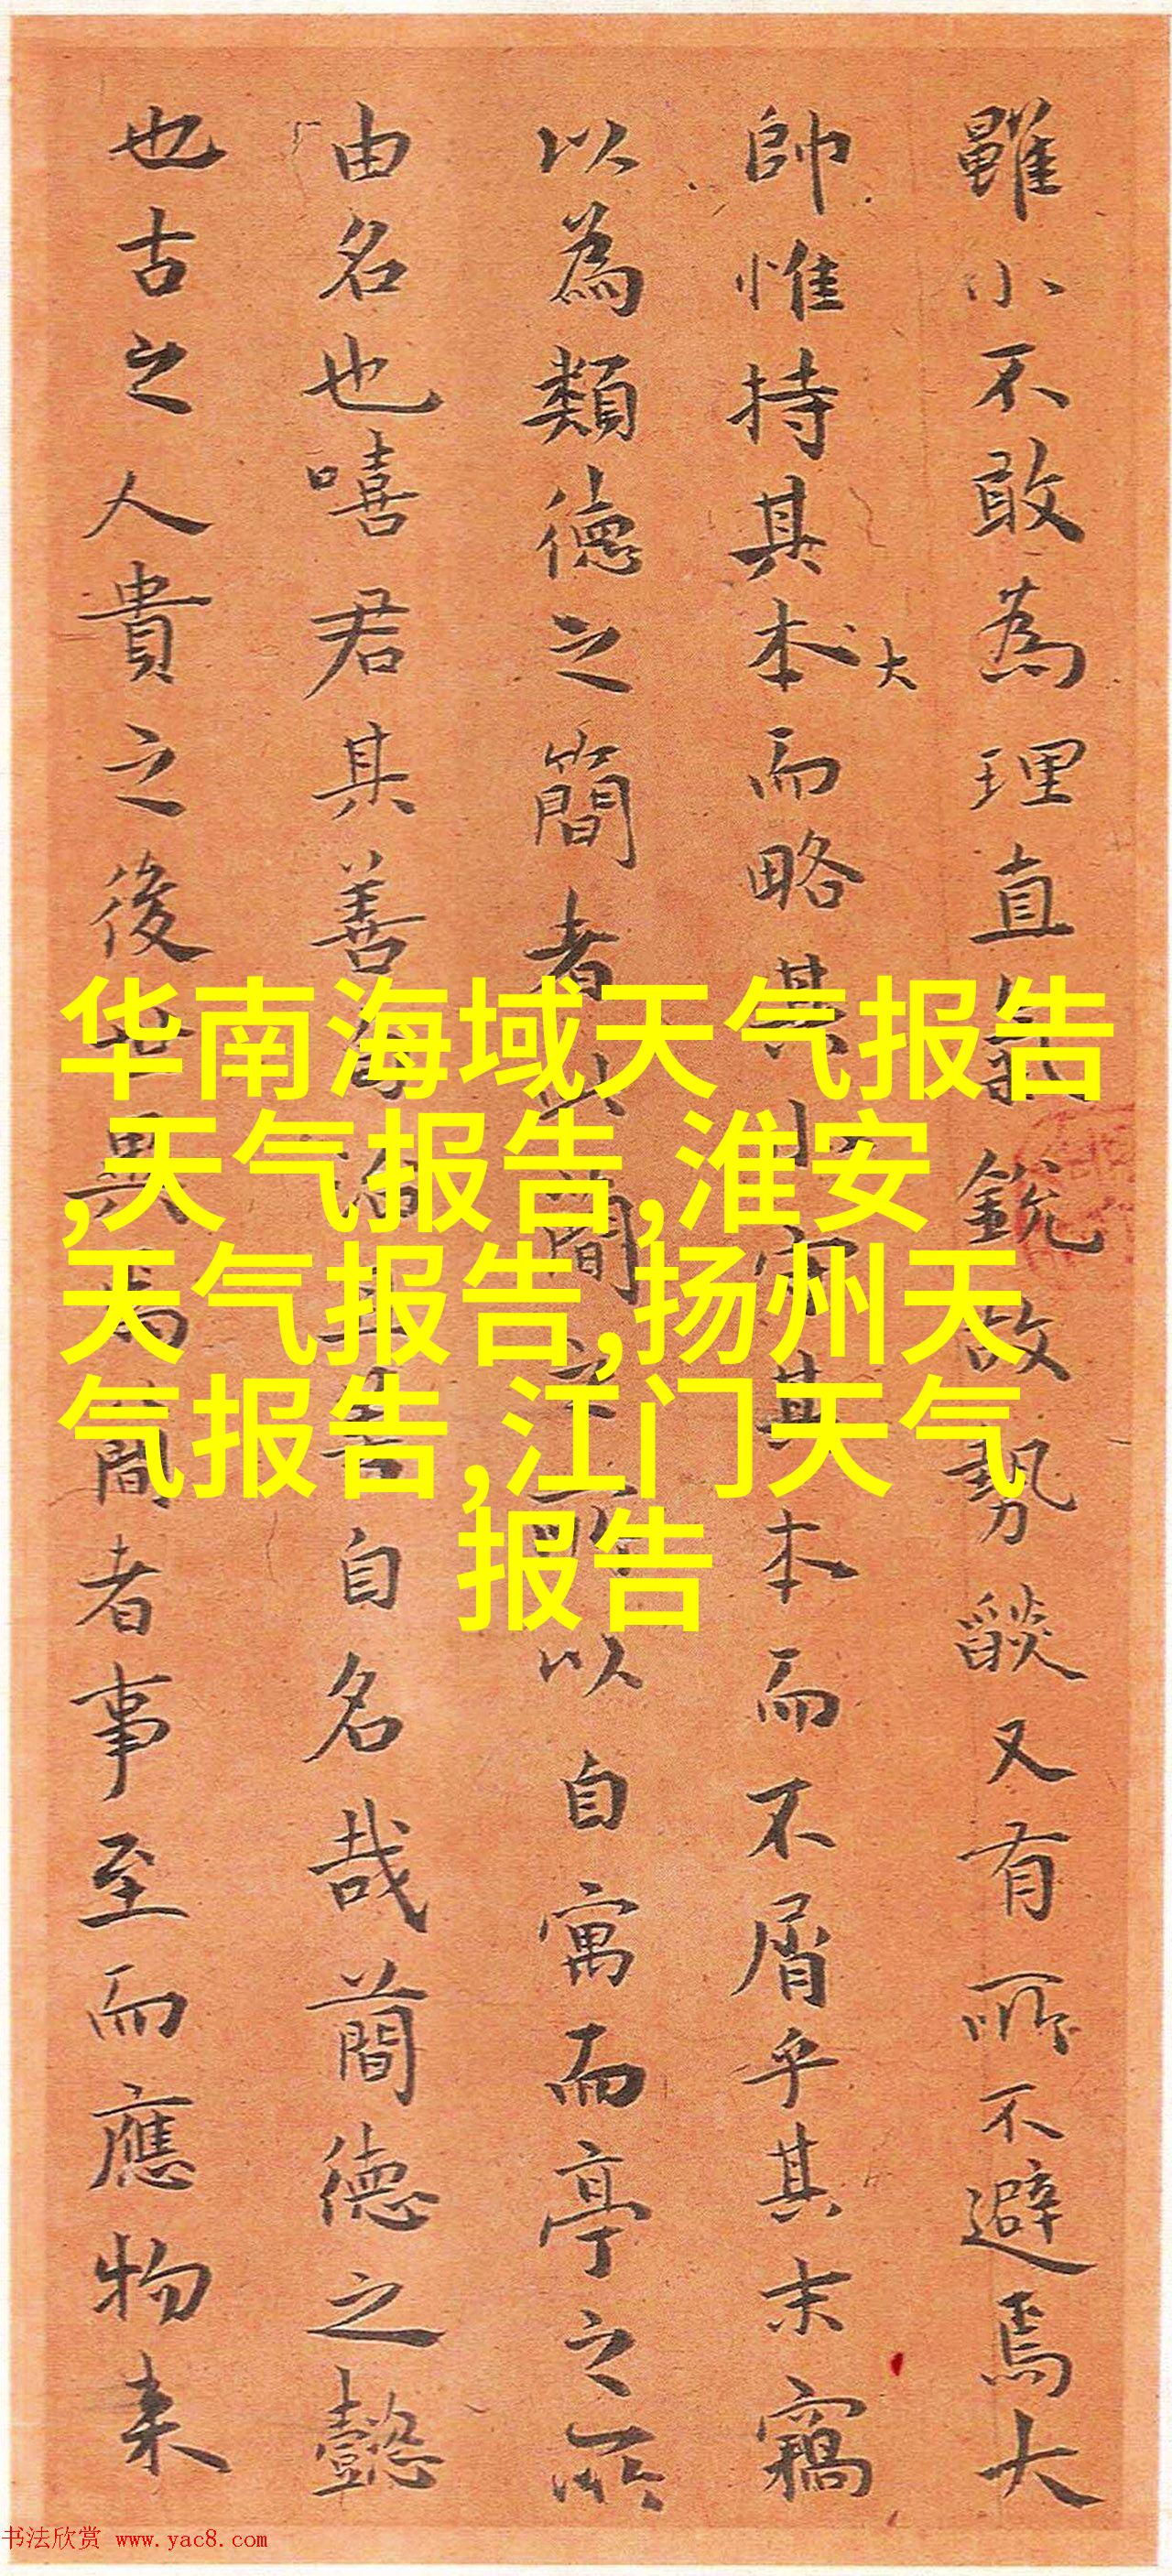 雖小不敢為理直氣銳故勢燄又有所不避焉大
帥惟持其本而略其小守其本而不屑乎其末竊
大
以為類德之簡者此簡之所以自寓而亭之所
由名也嘻君其善為治且善自名哉簡德之懿
也古之人貴之後世異焉簡者事至而應物来
华南海域天气报告
,天气报告,淮安
天气报告,扬州天
气报告,江门天气
报告
书法欣赏 www.yac8.com